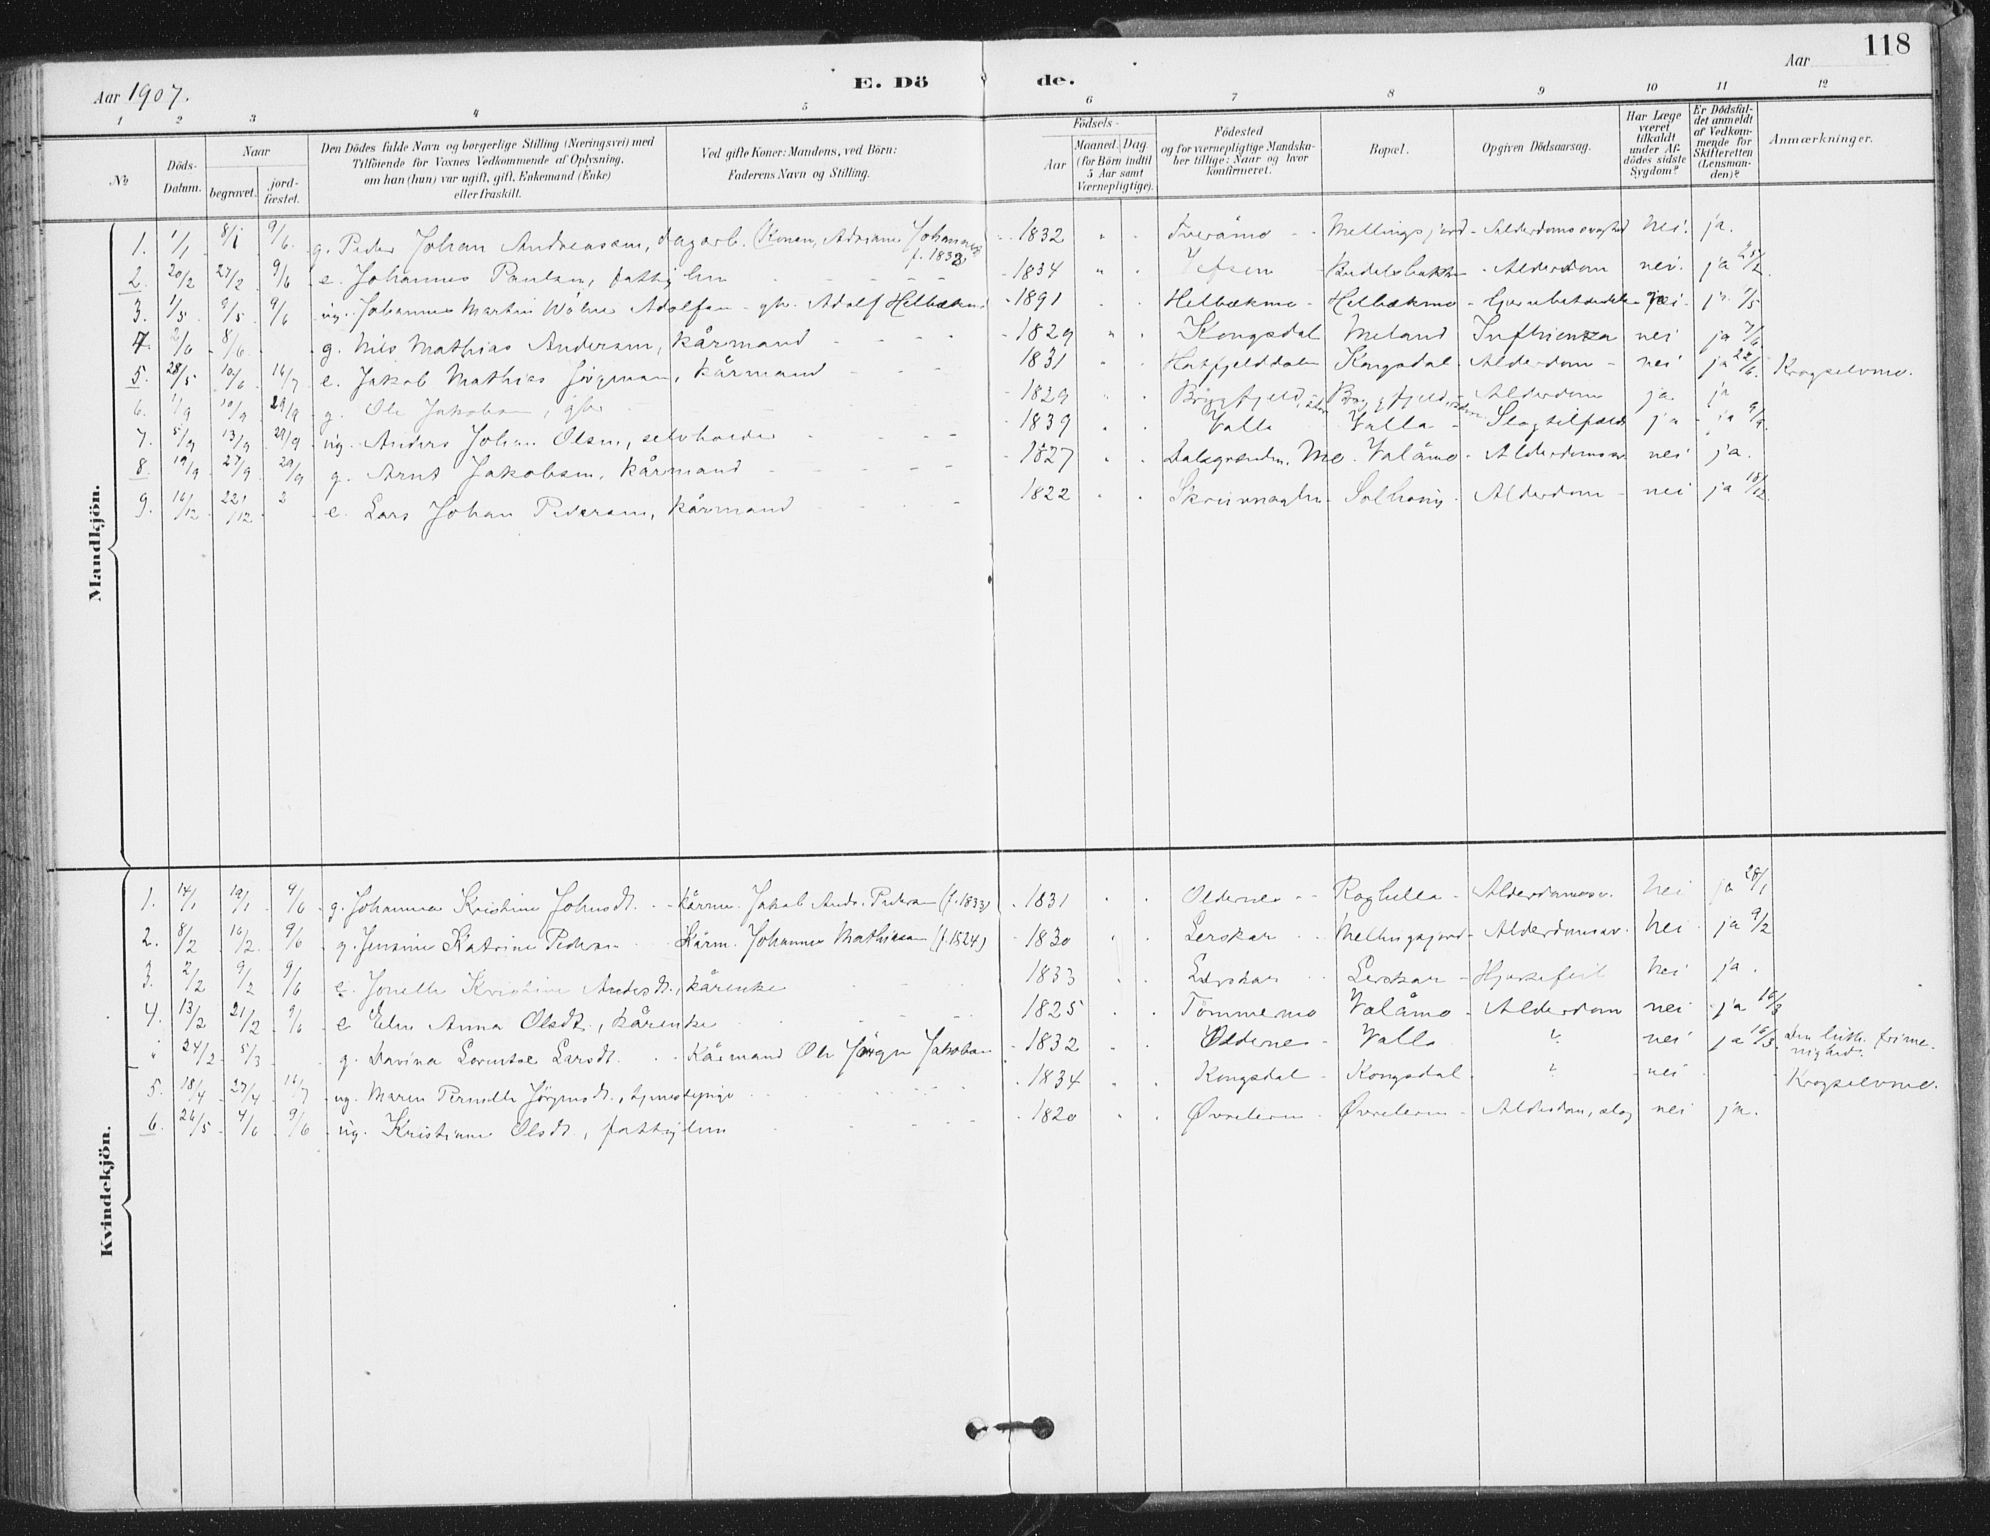 118
Aar 1907. E. Dö de. Aar
1 2 3 4 5 6 7 8 9 10 11 12
№
Döds-Datum.
Naar
begravet.
jord-fæstet.
Den Dödes fulde Navn og borgerlige Stilling (Næringsvei) med
Tilföiende for Voxnes Vedkommende af Oplysning,
om han (hun) var ugift, gift, Enkemand (Enke)
eller fraskilt.
Ved gifte Koner: Mandens, ved Börn:
Faderens Navn og Stilling.
Födsels-
Aar
Maaned. Dag.
(for Börn indtil
5 Aar samt
Værnepligtige).
Födested
og for værnepligtige Mandska-
ber tillige: Naar og hvor
konfirmeret.
Bopæl.
Opgiven Dödsaarsag.
Har Læge
været
tilkaldt
under Af-
dödes sidste
Sygdom?
Er Dödsfal-
det anmeldt
af Vedkom-
mende for
Skifteretten
(Lensman-
den)?
Anmærkninger.
Mandkjön.
1. 1/1 8/1 9/6 g. Peder Johan Andreassen, dagarb. (Konen, Adriane Johannes f. 1832) 1832 Tveråmo Mellingsjord Alderdomssvaghed nei. ja.
2. 20/2 27/2 9/6 e. Johannes Paulsen, fattiglem 1834 Vefsen Alderdom nei. ja
3. 1/5 9/5 9/6 ug. Johannes Martin Adolfsen gbr. Adolf Helbækmo 1891 Helbækmo Helbækmo nei ja 7/5
4. 2/6 8/6 g. Nils Mathias Andersen, kårmand 1829 Kongsdal Meland Influenza nei ja 7/6
5. 28/5 10/6 16/7 e. Jakob Mathias Jörgensen, kårmand 1831 Hatfjelddalen Kongsdal Alderdom nei ja 22/6 Krogselvmo.
6. 1/9 10/9 29/9 g. Ole Jakobsen, gbr 1829 Bryggfjeld, Bryggfjeld Alderdom ja ja
7. 5/9 13/9 29/9 ug. Anders Johan Olsen, selveier 1839 Valla Valla Slagtilfælde ja ja 9/9.
8. 19/9 27/9 29/9 g. Arnt Jakobsen, kårmand 1827 Dalsgrenden, Mo Valåmo Alderdomssv. nei ja.
9. 16/12 22/12 e. Lars Johan Pedersen, kårmand 1822 Alderdom nei ja 18/12
Kvindekjön.
1. 14/1 19/1 9/6 g. Johanna Kristine Johnsdt. kårm. Jakob Ands. Pedersen (f. 1833) 1831 Oldernes Alderdomssv. nei ja 28/1
2. 8/2 16/2 9/6 g. Jensine Katrine Pedersen Kårm. Johannes Mathiasen (f. 1824) 1830 Lerskar Mellingsjord Alderdomssv. nei ja 9/2
3. 2/2 9/2 9/6 e. Jonette Kristine Andersdt., kårenke 1833 Lerskar Lerskar Hjertefeil nei ja.
4. 13/2 21/2 9/6 e. Elen Anna Olsdt., kårenke 1825 Tömmermo Valåmo Alderdom nei ja 16/3
" 24/2 5/3 g. Davina Lorentse Larsdt. Kårmand Ole Jörgen Jakobsen 1832 Oldernes Valla " nei ja 16/3. Den luth. frime-
nighed.
5. 18/4 27/4 16/7 ug. Maren Pernelle Jörgensdt., tjenestepige 1834 Kongsdal Kongsdal " nei Krogselvmo.
6. 26/5 4/6 9/6 ug. Kristianne Olsdt., fattiglem 1820 Øvreleren Øvreleren Alderdom, slag nei ja.